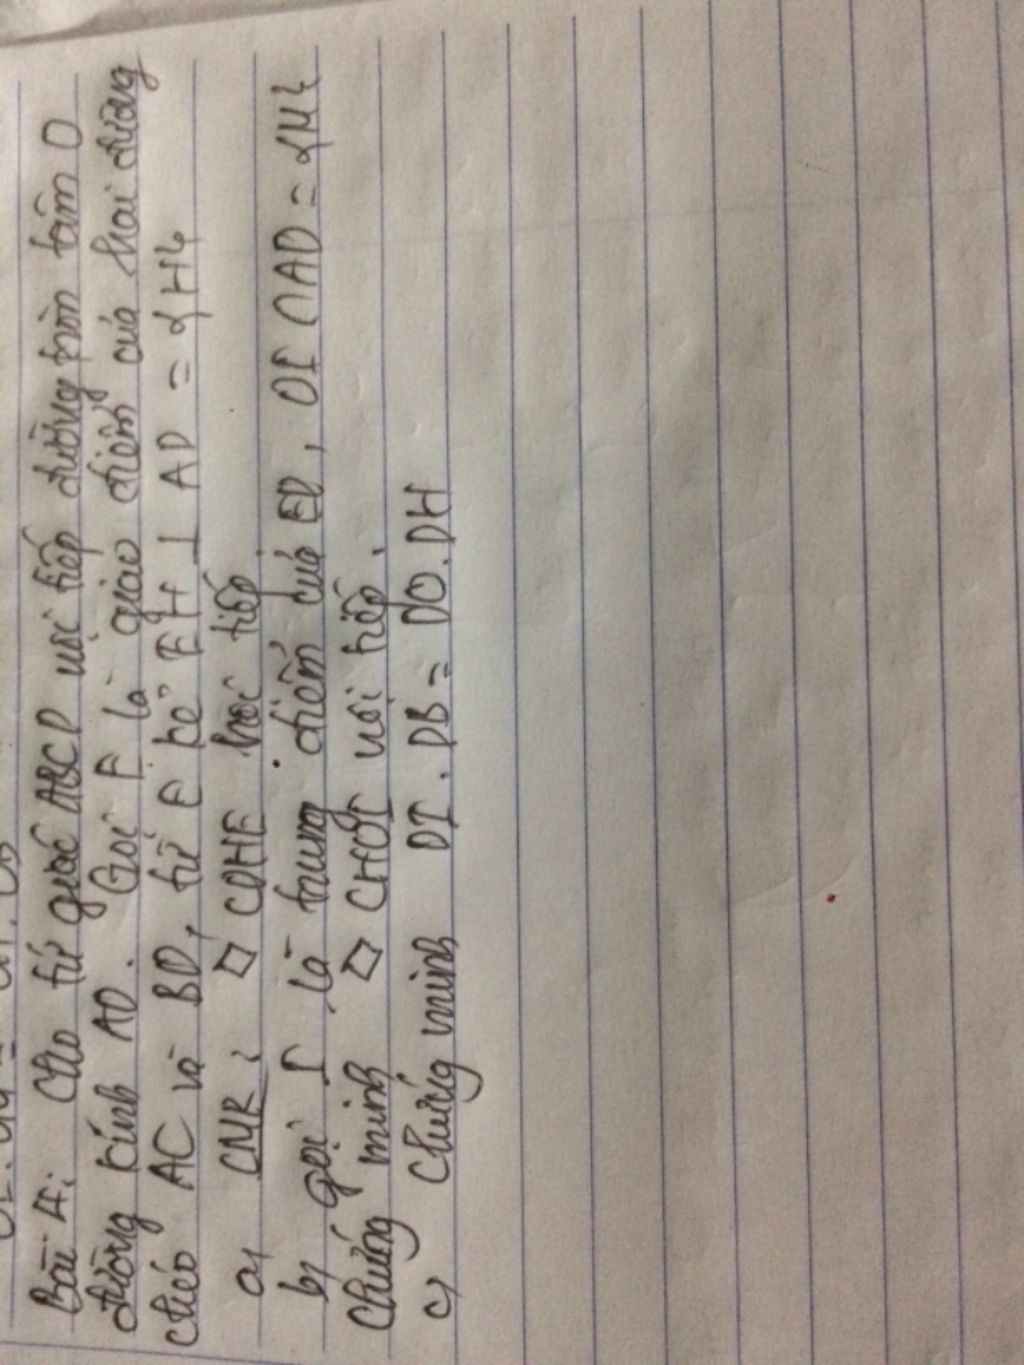 Bài 4: Cho tứ giác ABCD nội tiếp đường tròn tâm O
đường kính AD. Gọi E là giao điểm của hai đường
chéo AC và BD, từ E kẻ EH ⊥ AD = {H}
a, CMR: ◇ CDHE nội tiếp
b, gọi I là trung điểm của ED, OI ∩ AD = {M}
Chứng minh ◇ CHOI nội tiếp.
c, Chứng minh DI. DB = DO. DH